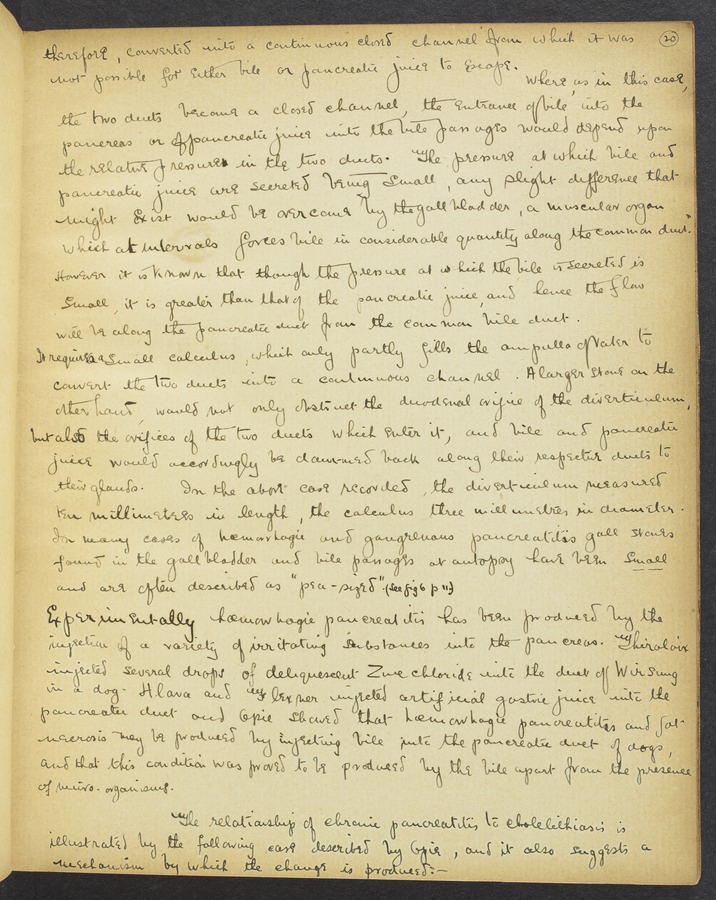 20
therefore, converted into a continuous closed channel from which it was
not possible for either bile or pancreatic juice to escape. Where as in this case,
the two ducts become a closed channel, the entrance of bile into the
pancreas or of pancreatic juice into the bile passages would depend upon
the relative pressures in the two ducts. "The pressure at which bile and
pancreatic juice are secreted being small, any slight difference that
might exist would be overcome by the gall bladder, a muscular organ
which at intervals forces bile in considerable quantity along the common duct."
However it is known that though the pressure at which the bile is secreted is
small, it is greater than that of the pancreatic juice, and hence the flow
will be along the pancreatic duct from the common bile duct.
It requires a small calculus, which only partly fills the ampulla of Vater to
convert the two ducts into a continuous channel. A larger stone on the
other hand, would not only obstruct the duodenal orifice of the diverticulum,
but also the orifices of the two ducts which enter it, and bile and pancreatic
juice would accordingly be dammed back along their respective ducts to
their glands. In the above case recorded, the diverticulum measured
ten millimetres in length, the calculus three millimetres in diameter.
In many cases of hæmorrhagic and gangrenous pancreatitis gall stones
found in the gall bladder and bile passages at autopsy have been small
and are often described as "pea-sized". (see fig 6 p 11)
Experimentally hæmorrhagic pancreatitis has been produced by the
injection of a variety of irritating substances into the pancreas. Thiroloix
injected several drops of deliquescent Zinc chloride into the duct of Wirsung
in a dog. Hlava and Flexner injected artificial gastric juice into the
pancreatic duct and Opie showed that hæmorrhagic pancreatitis and fat
necrosis may be produced by injecting bile into the pancreatic duct of dogs,
and that this condition was proved to be produced by the bile apart from the presence
of micro-organisms.
The relationship of chronic pancreatitis to cholelithiasis is
illustrated by the following case described by Opie, and it also suggests a
mechanism by which the change is produced:—